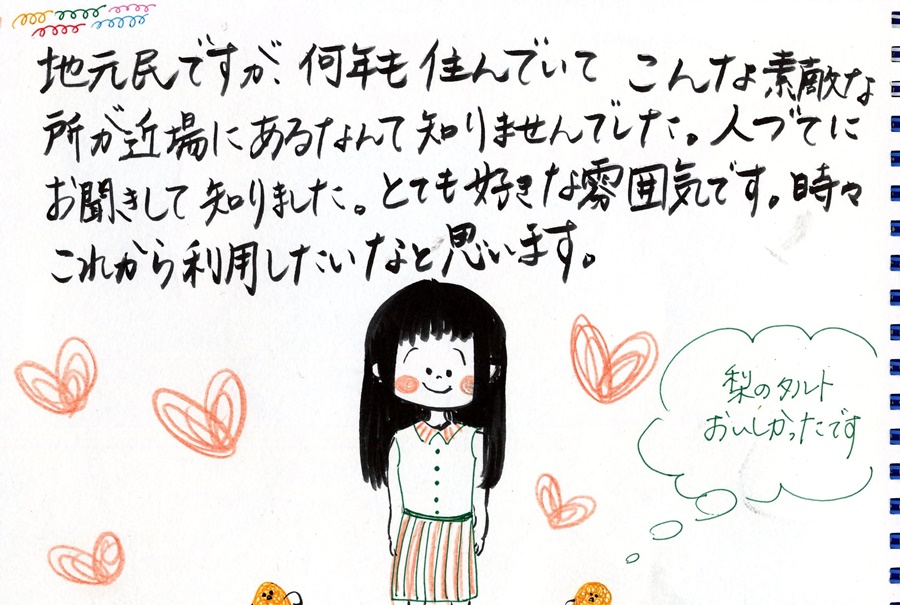 地元民ですが、何年も住んでいて こんな素敵な
所が近場にあるなんて知りませんでした。人づてに
お聞きして知りました。とても好きな雰囲気です。時々
これから利用したいなと思います。
梨のタルト
おいしかったです